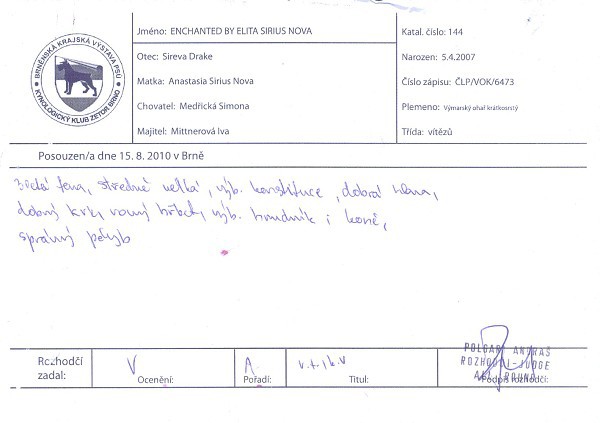 BRNĚNSKÁ KRAJSKÁ VÝSTAVA PSŮ
KYNOLOGICKÝ KLUB ZETOR BRNO
Jméno: ENCHANTED BY ELITA SIRIUS NOVA
Katal. číslo: 144
Otec: Sireva Drake
Narozen: 5.4.2007
Matka: Anastasia Sirius Nova
Číslo zápisu: ČLP/VOK/6473
Chovatel: Medřická Simona
Plemeno: Výmarský ohař krátkosrstý
Majitel: Mittnerová Iva
Třída: vítězů
Posouzen/a dne 15. 8. 2010 v Brně
3letá fena, středně velká, výb. konstituce, dobrá hlava,
dobrý krk, rovný hřbet, výb. hrudník i konč,
správný pohyb
Rozhodčí zadal:
V
Ocenění:
Pořadí:
Titul:
POLGÁR ANDRÁŠ
ROZHODČÍ-JUDGE
ALL ROUND
Podpis rozhodčí: